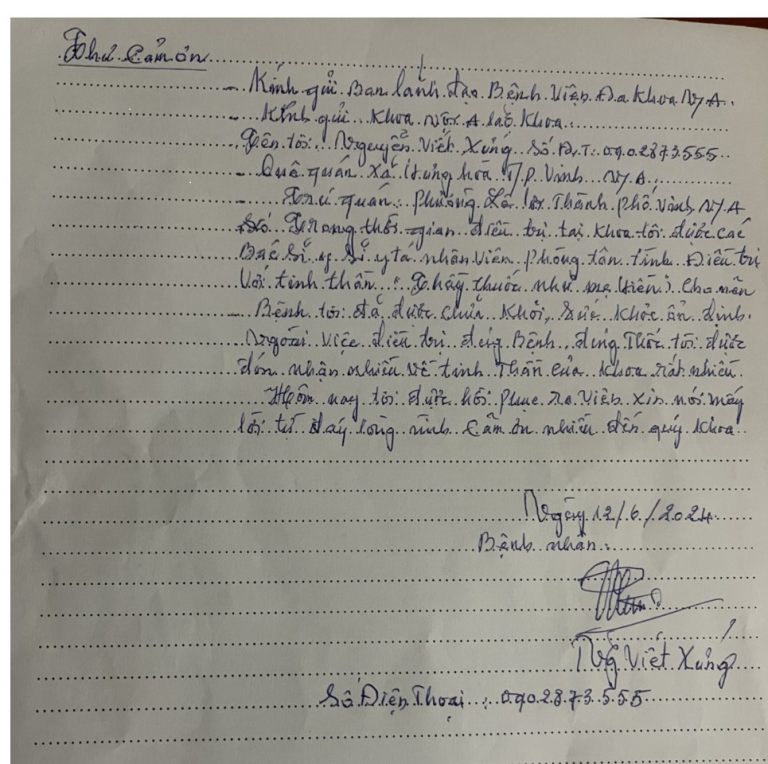 Thư Cảm ơn
- Kính gửi Ban lãnh đạo Bệnh Viện Đa Khoa N/A.
- Kính gửi Khoa Nội A lão Khoa.
Tên tôi: Nguyễn Viết Xứng Số Đ.T: 090.2873555
- Quê quán xã Hưng hoà T.p. Vinh N/A.
- Trú quán: phường Lê lợi Thành phố Vinh N/A
Trong thời gian điều trị tại Khoa tôi được các
Bác sĩ y sĩ y tá nhân viên phòng tận tình Điều trị
Với tinh thần "Thầy thuốc như mẹ hiền") Cho nên
Bệnh tôi đã được chữa Khỏi, Sức Khỏe ổn định.
Ngoài việc điều trị đúng Bệnh, đúng Thuốc tôi được
đón nhận nhiều về tinh Thần của Khoa rất nhiều.
Hôm nay tôi được hồi phục ra viện xin nói mấy
lời từ đáy lòng mình Cảm ơn nhiều đến quý Khoa
Ngày 12/6/2024
Bệnh nhân:
Ng Viết Xứng
Số Điện Thoại: 090.2873.555